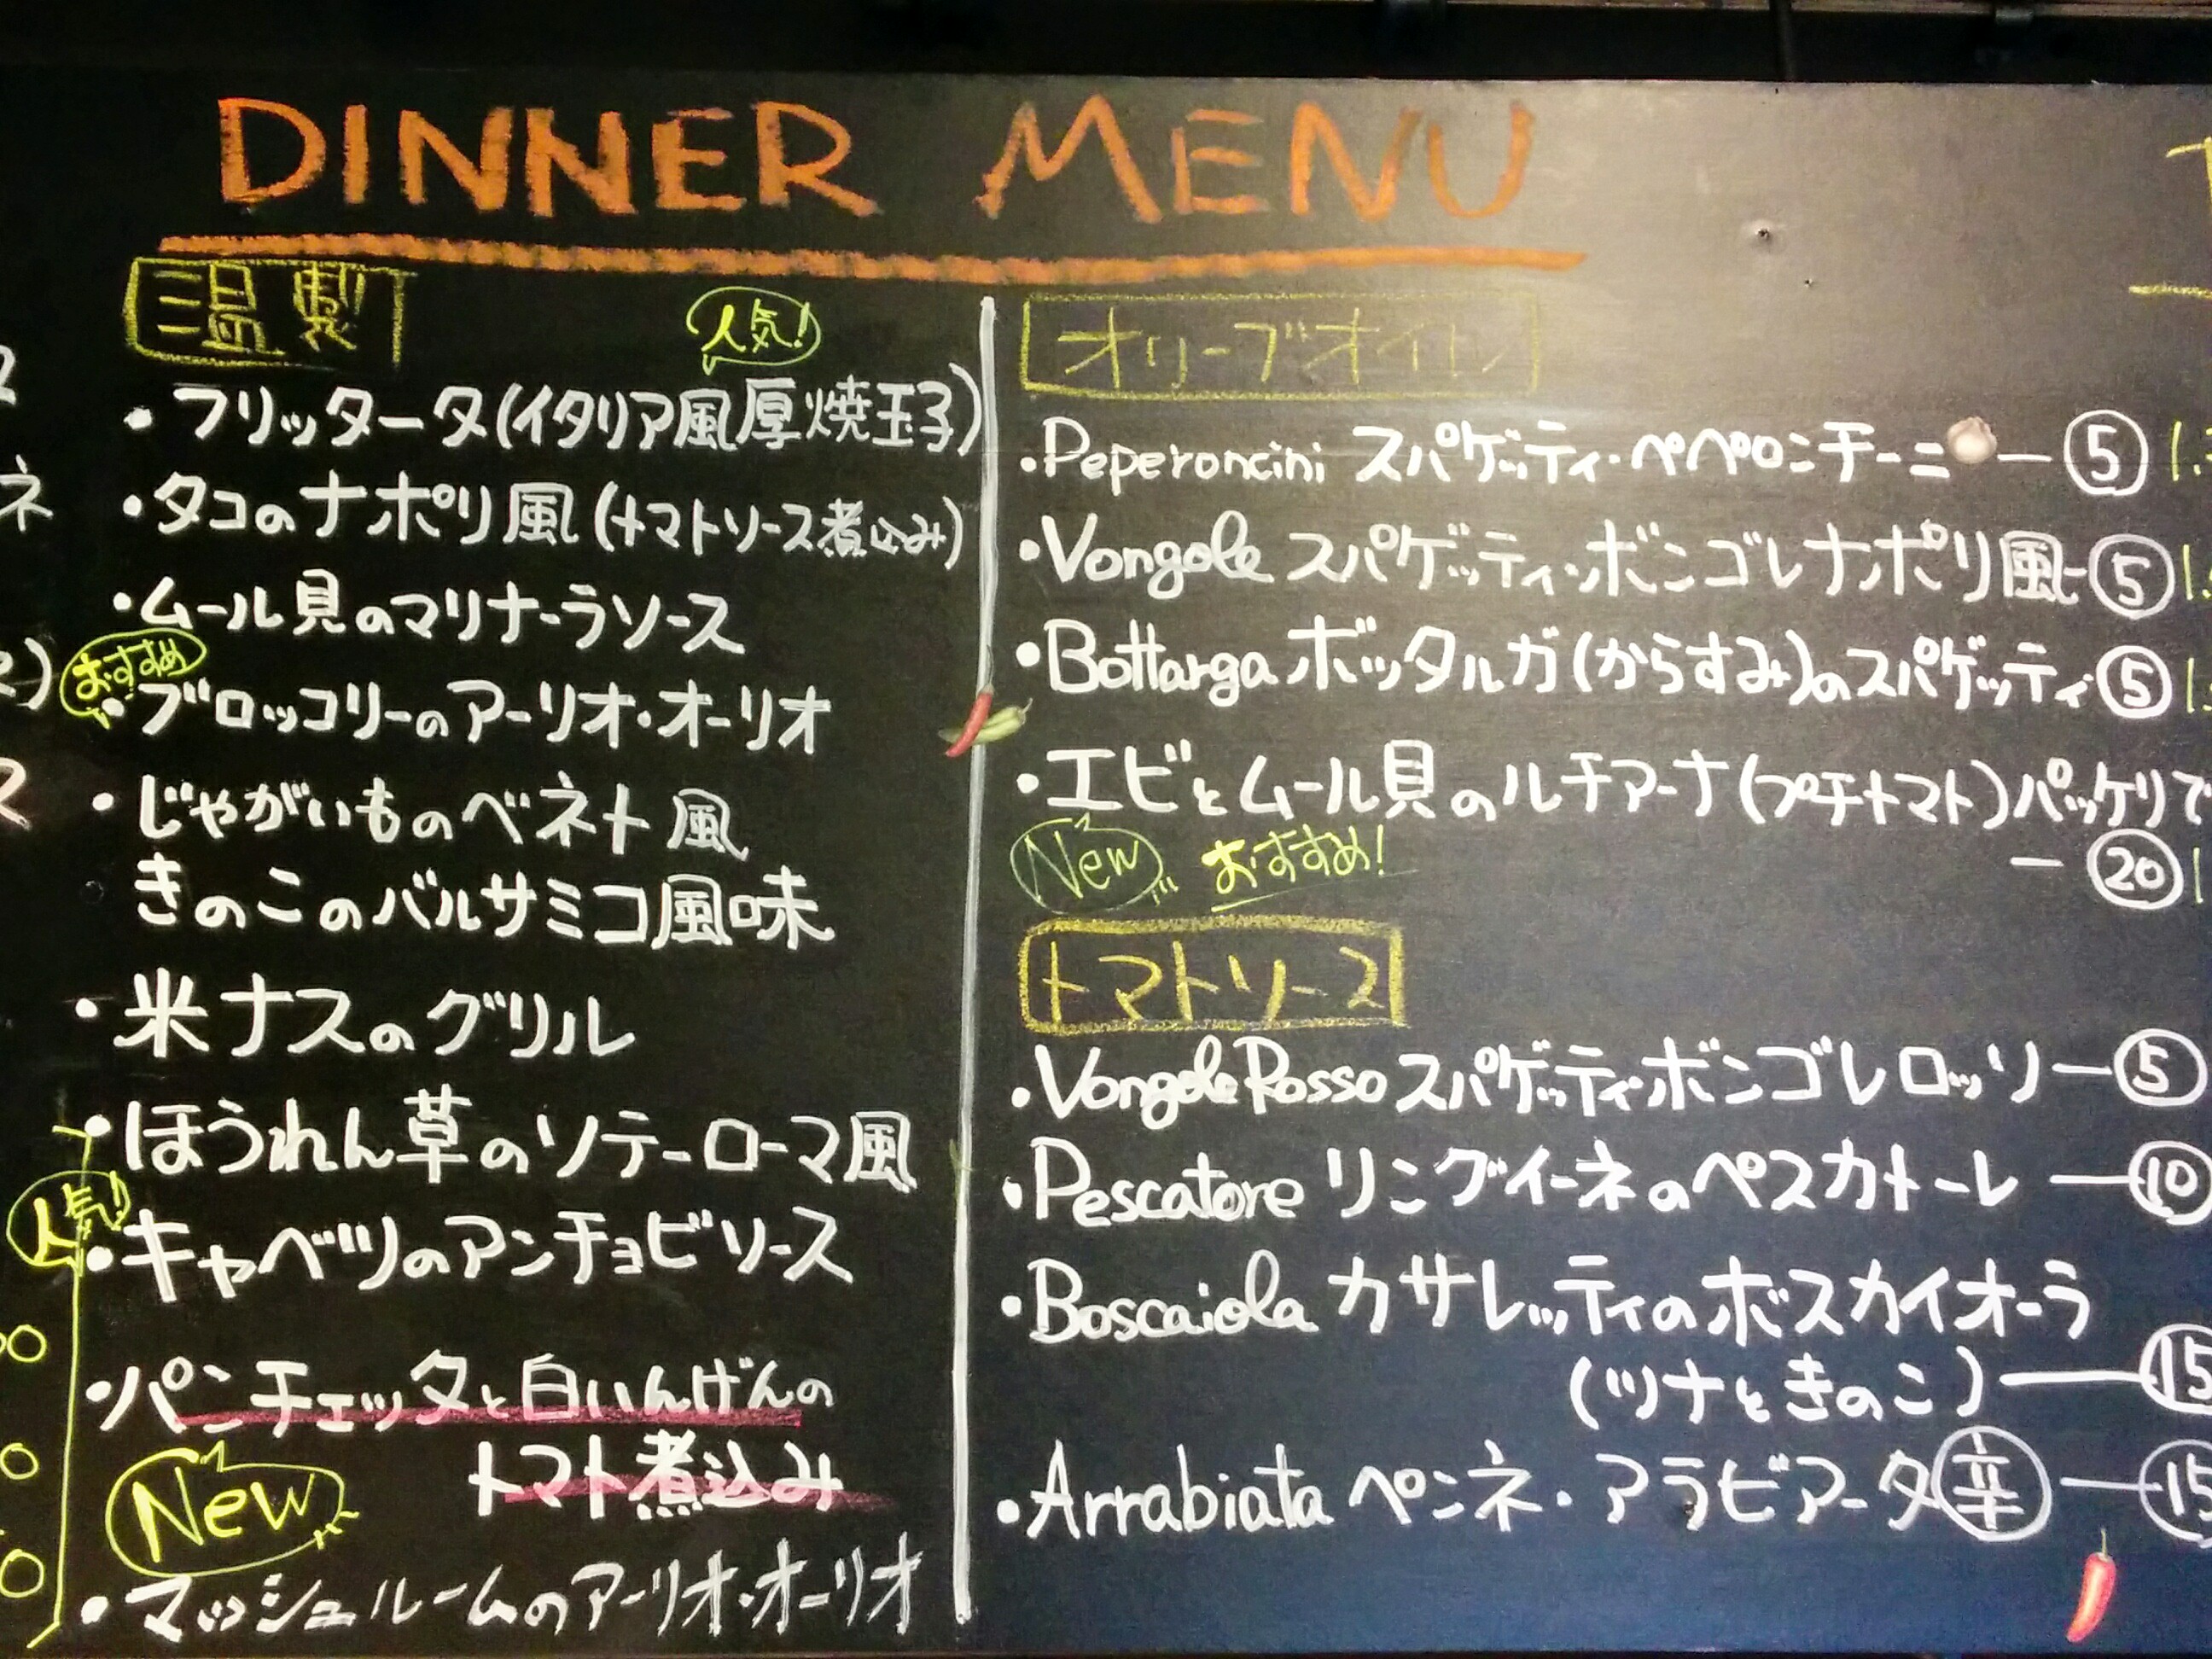 DINNER MENU
温製
人気!
・フリッタータ(イタリア風厚焼玉子)
・タコのナポリ風(トマトソース煮込み)
・ムール貝のマリナーラソース
おすすめ
・ブロッコリーのアーリオ・オーリオ
・じゃがいものベネト風
きのこのバルサミコ風味
・米ナスのグリル
・ほうれん草のソテーローマ風
人気!
・キャベツのアンチョビソース
・パンチェッタと白いんげんの
トマト煮込み
New
・マッシュルームのアーリオ・オーリオ
オリーブオイル
・Peperoncini スパゲッティ・ペペロンチーニ — ⑤
・Vongole スパゲッティ・ボンゴレナポリ風 - ⑤
・Bottarga ボッタルガ(からすみ)のスパゲッティ ⑤
・エビとムール貝のルチアーナ(プチトマト)パッケリで
New おすすめ! — ⑳
トマトソース
・Vongole Rosso スパゲッティ・ボンゴレロッソ — ⑤
・Pescatore リングイーネのペスカトーレ — ⑩
・Boscaiola カサレッティのボスカイオーラ
(ツナときのこ) — ⑮
・Arrabiata ペンネ・アラビアータ 辛 — ⑮